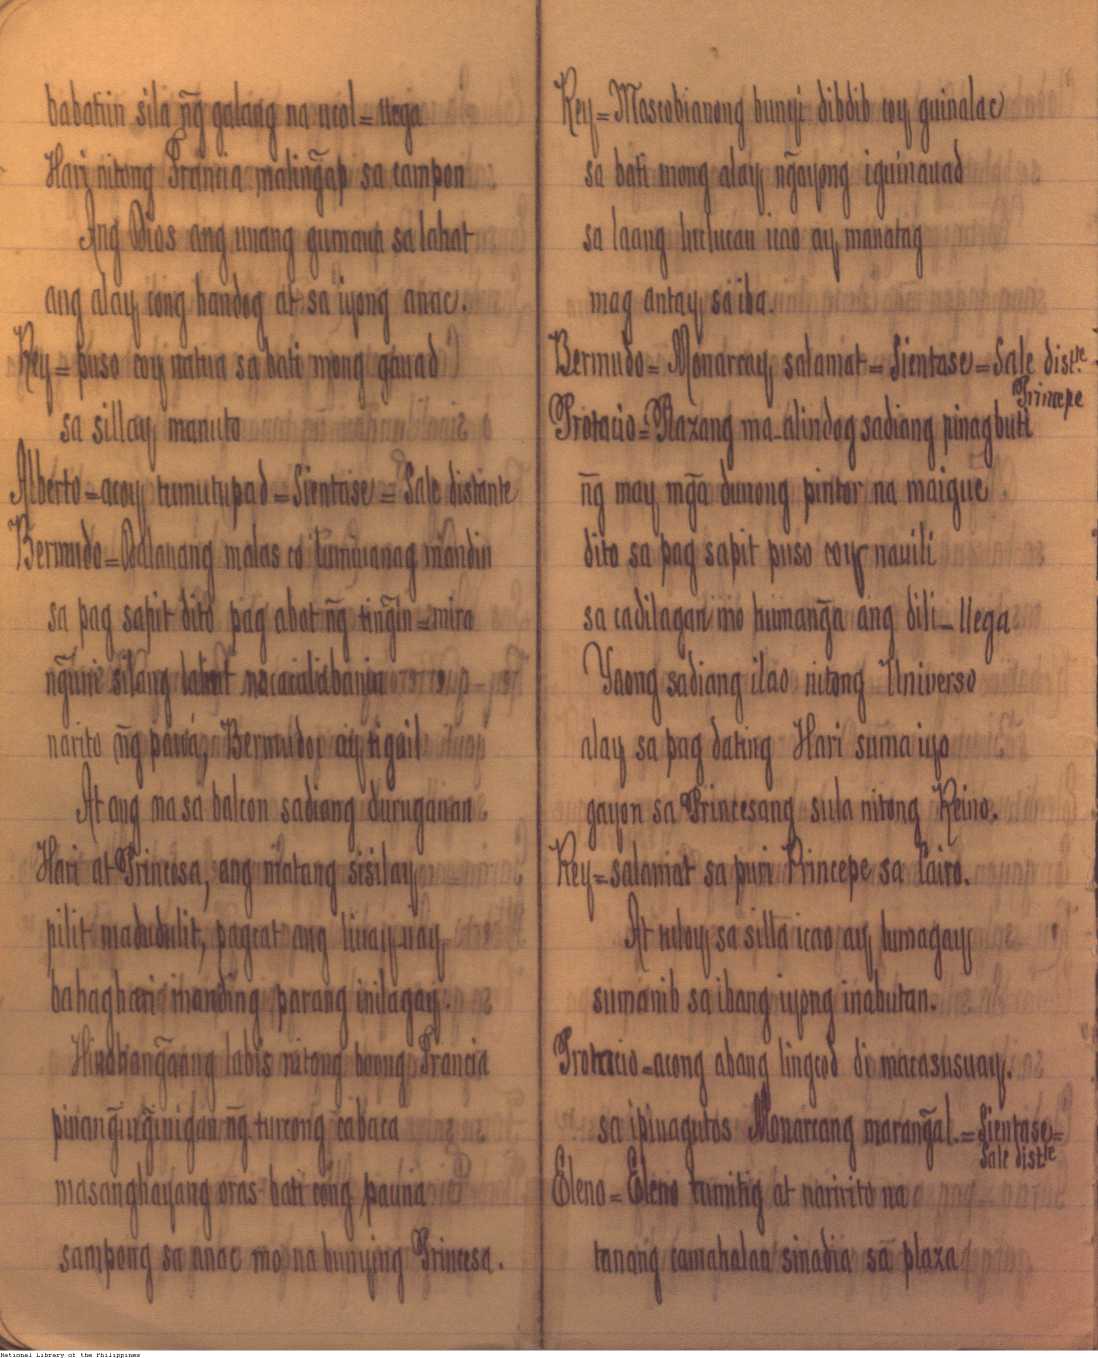 babatiin sila ñg galang na ucol = llega
Hari nitong Francia malinğap sa campon
Ang Dios ang unang gumaua sa lahat
ang alay cong handog at sa iyong anac.
Rey = puso coy natua sa bati mong gauad
sa sillay manuto
Alberto = acoy tumutupad = Sientase = Sale distante
Bermudo = Dalauang malas co tumuanag mandin
sa pag sapit dito pag abot ñg tinğin = mira
nğuni silang lahat
narito ñg paua, Bermudoy ay tigil
At ang masa balcon sadiang durugauan
Hari at Princesa, ang matang sisilay
pilit madudulit, pagcat ang linay nay
bahaghari manding parang inilagay.
labis nitong boong Francia
ñg turcong cabaca
masanghayang oras bati cong pauna
sampong sa anac mo na bunying Princesa.
Rey = Mascobianong bunyi dibdib coy guinalac
sa bati mong alay nğayong iguinauad
sa laang luclucan icao ay manatag
mag antay sa iba.
Bermudo = Monarcay salamat = Sientase = Sale dis.te
Princepe
Protacio = Plazang ma-alindog sadiang pinagbuti
ñg may mğa dunong pintor na maigue
dito sa pag sapit puso coy nauili
sa cadilagan mo humanğa ang dili - llega
Yaong sadiang ilao nitong Universo
alay sa pag dating Hari suma iyo
gayon sa Princesang sula nitong Reino.
Rey = salamat sa puri Princepe sa Cairo.
At tuloy sa silla icao ay lumagay
sumanib sa ibang iyong inabutan.
Protacio = acong abang lingcod di macasusuay.
sa ipinagutos Monarcang maranğal. = Sientase =
Sale distte
Eleno = Eleno tumitig at naririto na
tanang camahalan sinadia sa plaza
National Library of the Philippines